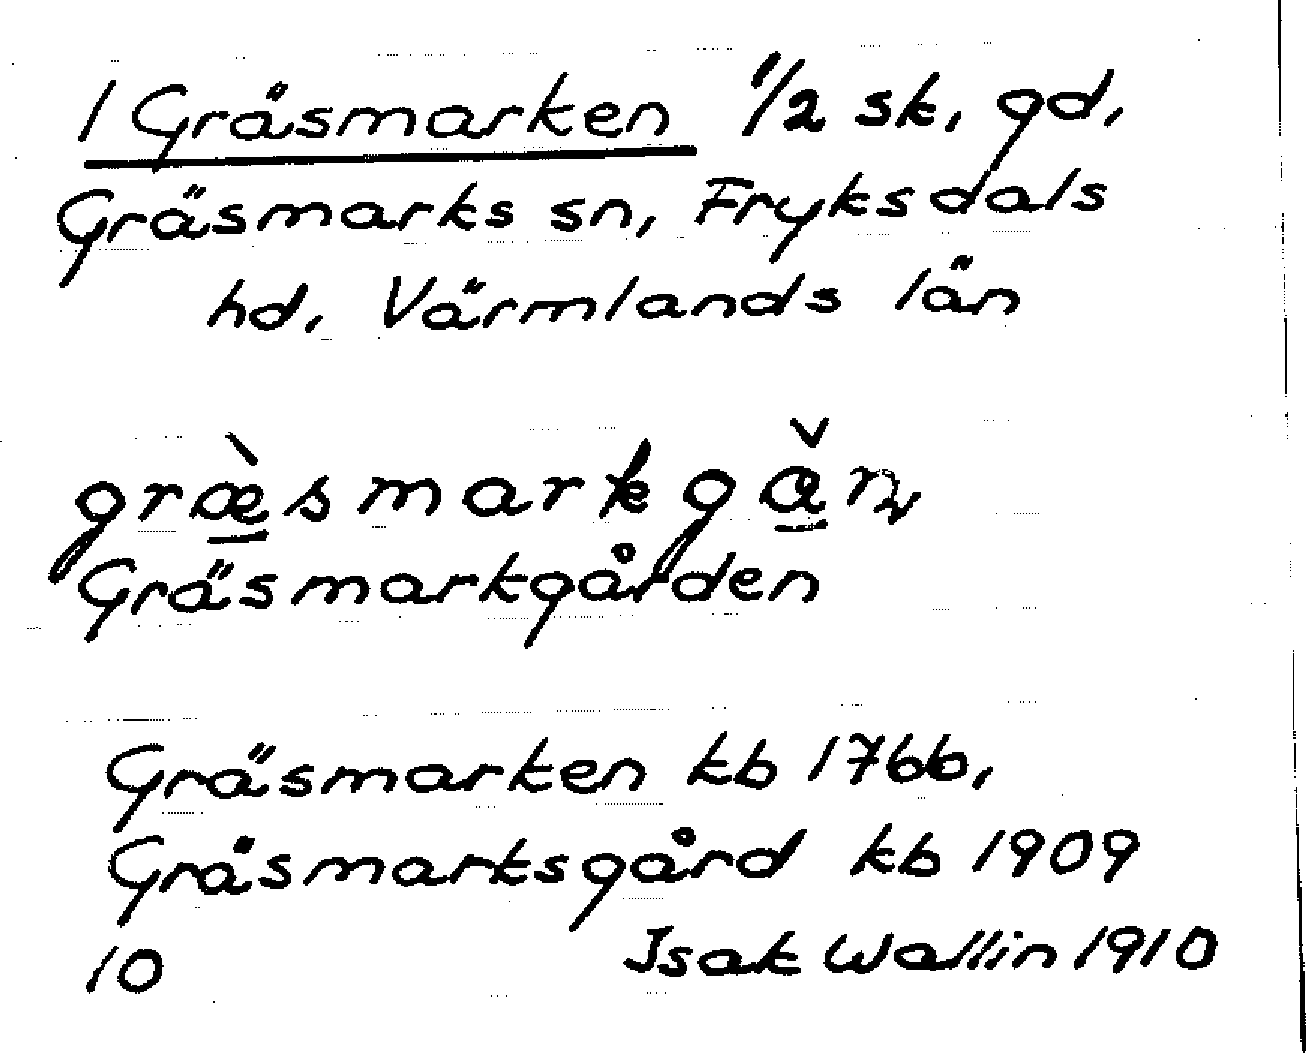 1 Gräsmarken 1/2 sk, gd,
Gräsmarks sn, Fryksdals
hd, Värmlands län
græ̀smarkgǎn,
Gräsmarkgården
Gräsmarken kb 1766,
Gräsmarksgård kb 1909
10 Isak Wallin 1910